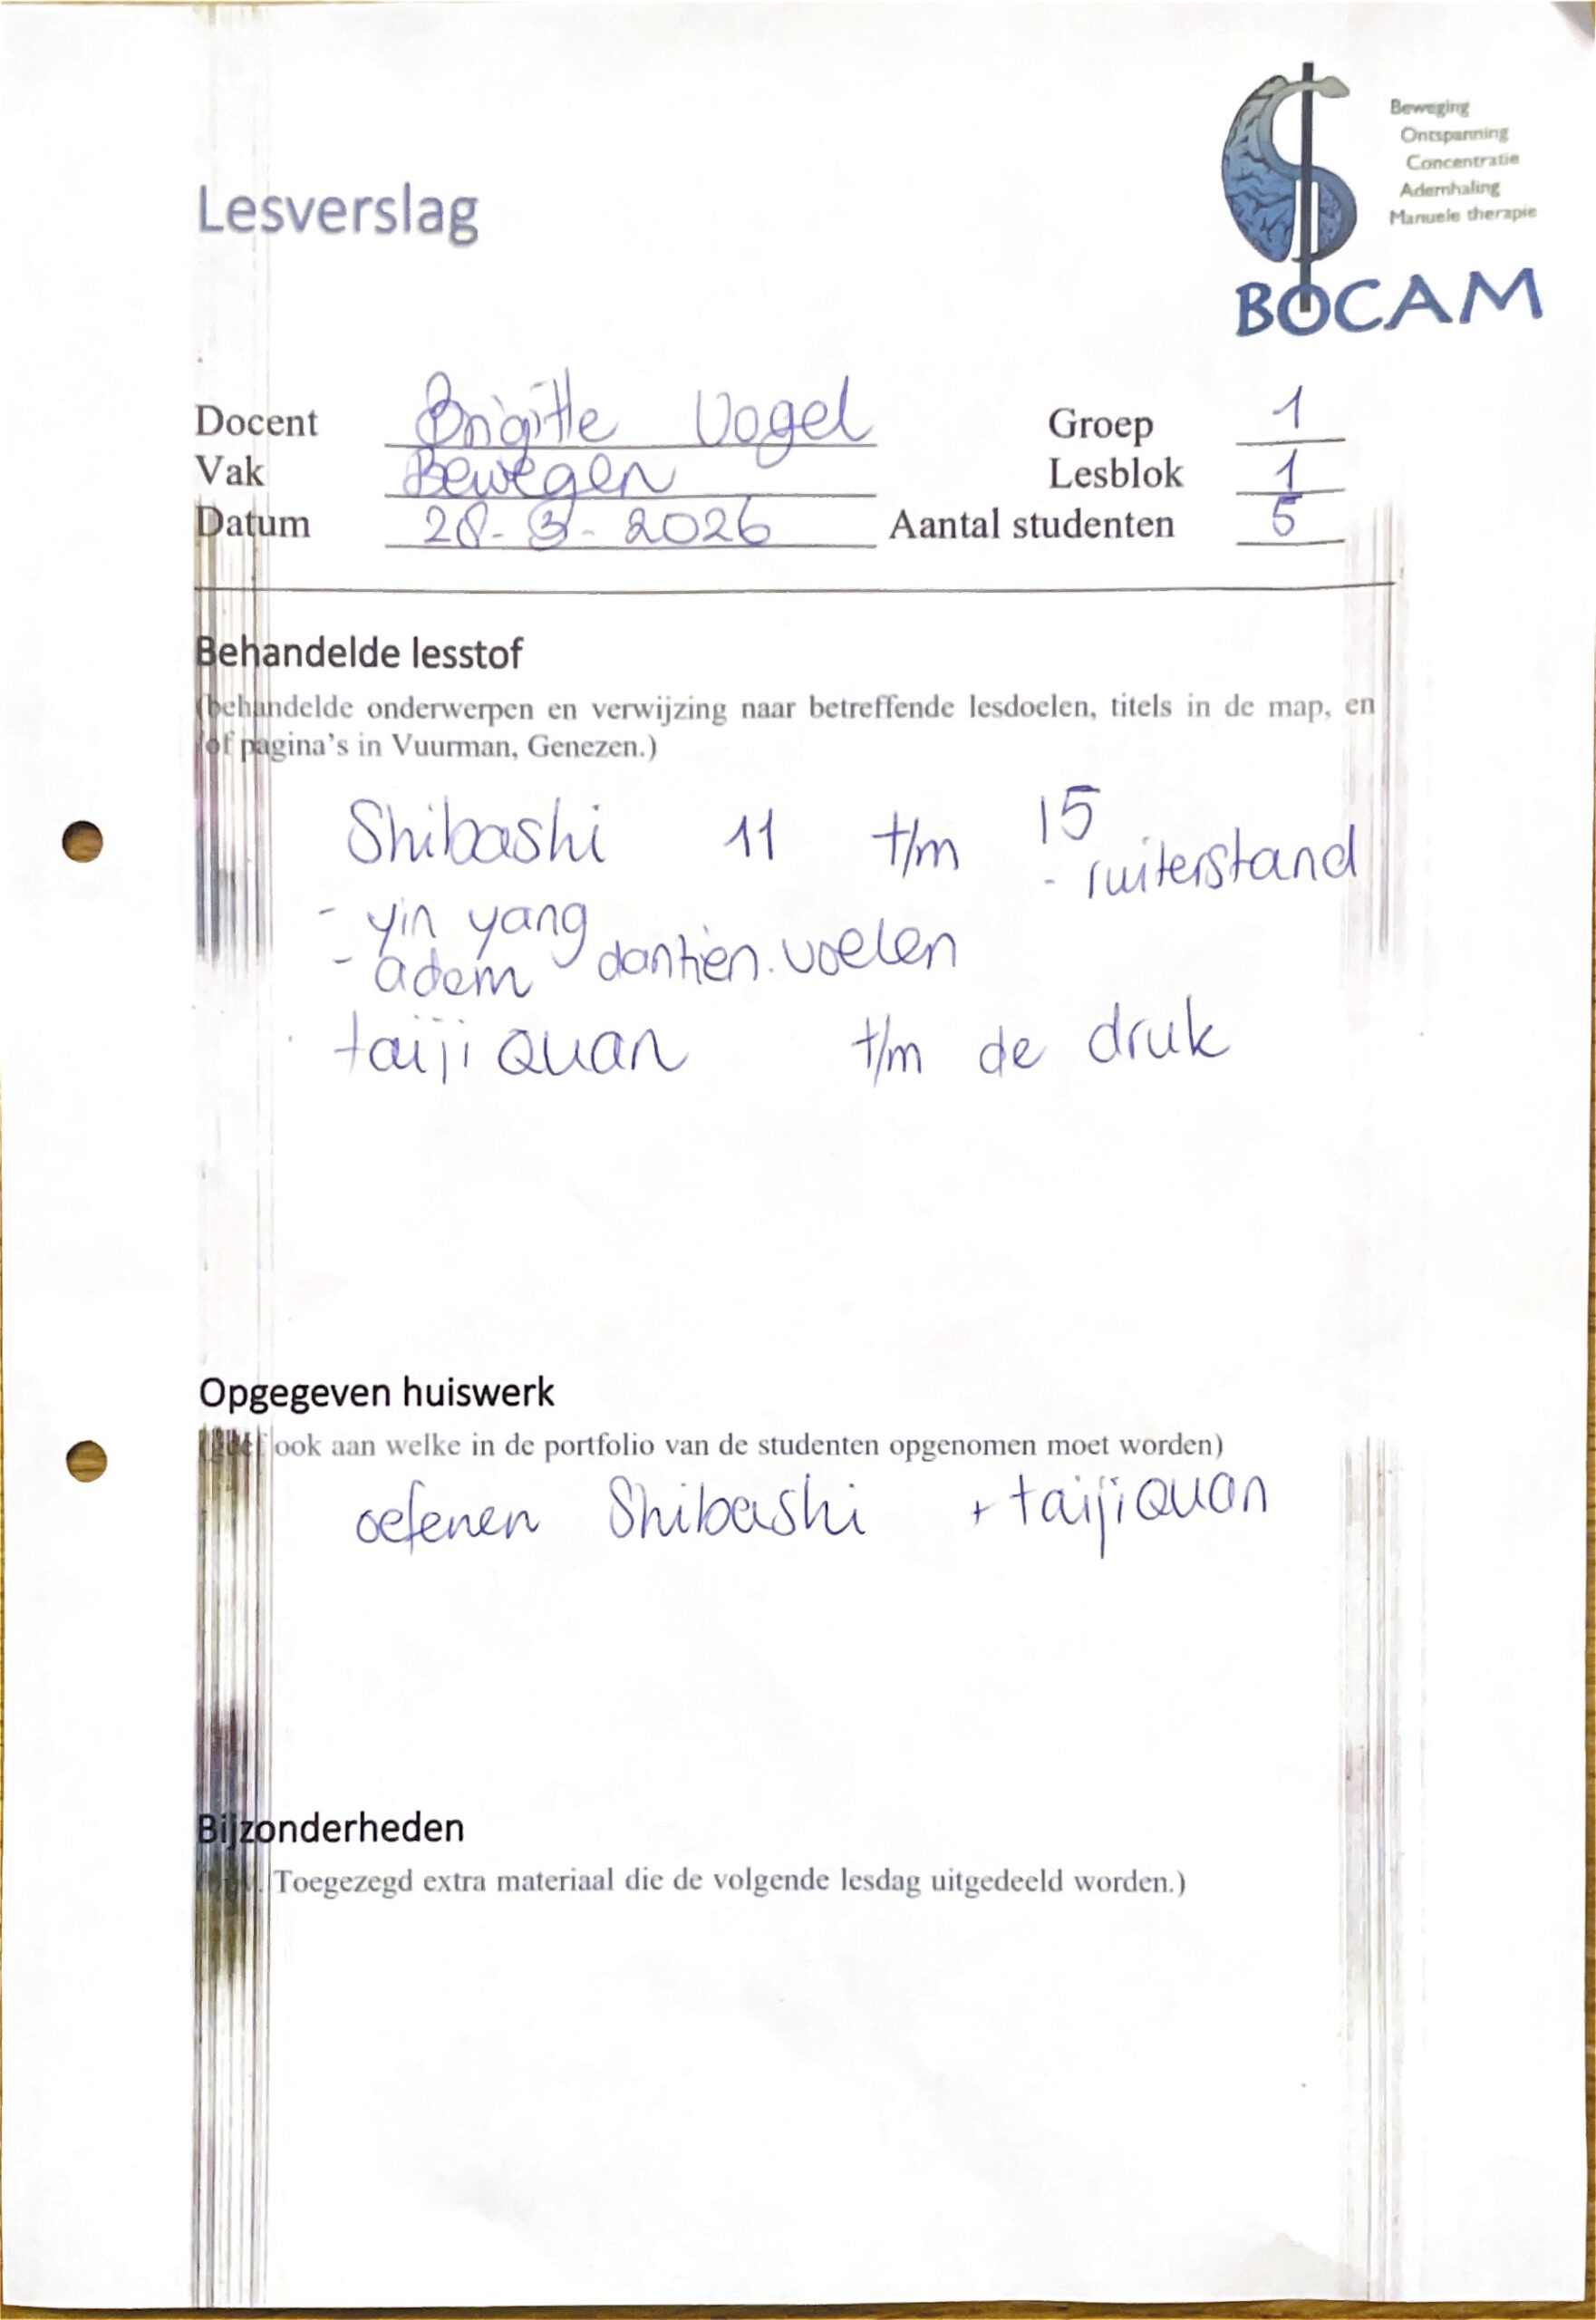 Beweging
Ontspanning
Concentratie
Ademhaling
Manuele therapie
BOCAM
Lesverslag
Docent Brigitte Vogel Groep 1
Vak Bewegen Lesblok 1
Datum 28-3-2026 Aantal studenten 5
Behandelde lesstof
(behandelde onderwerpen en verwijzing naar betreffende lesdoelen, titels in de map, en
of pagina's in Vuurman, Genezen.)
Shibashi 11 t/m 15
- ruiterstand
- yin yang
- adem dantien voelen
taiji quan t/m de druk
Opgegeven huiswerk
ook aan welke in de portfolio van de studenten opgenomen moet worden)
oefenen Shibashi + taijiquan
Bijzonderheden
Toegezegd extra materiaal die de volgende lesdag uitgedeeld worden.)